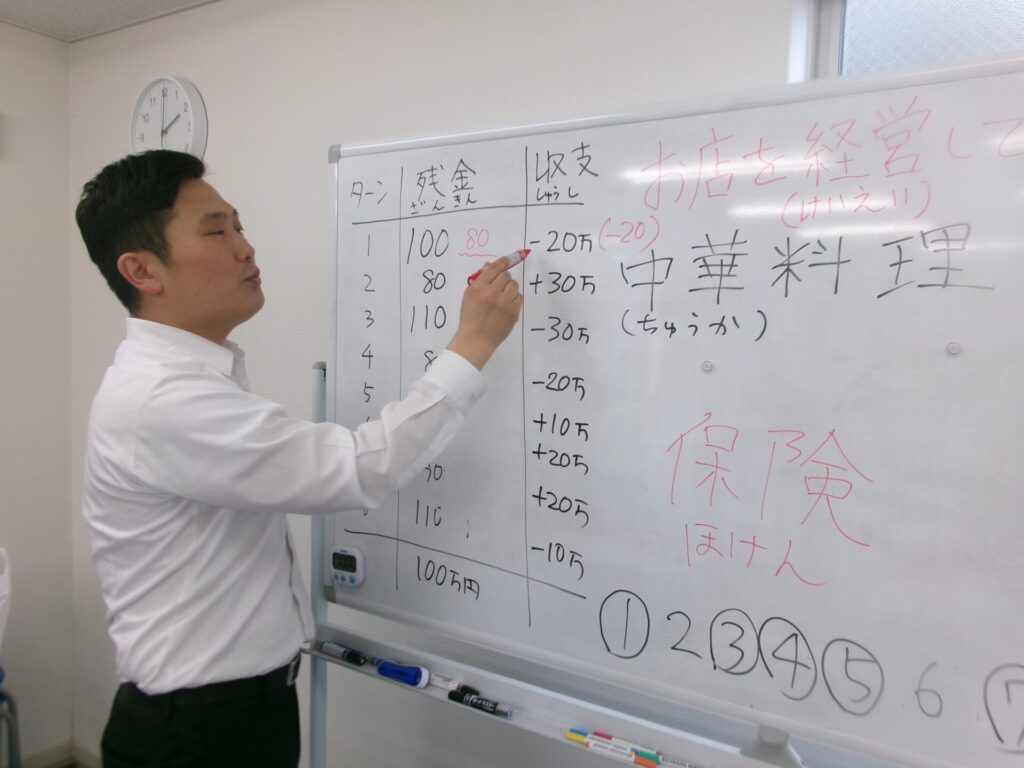 ターン 残金 収支
ざん きん しゅうし
1 100 80 -20万 (-20)
2 80 +30万
3 110 -30万
4 8
5 -20万
+10万
30 +20万
110 +20万
-10万
100万円
お店を経営して
(けいえい)
中華料理
(ちゅうか)
保険
ほけん
① 2 ③ ④ ⑤ 6 ⑦